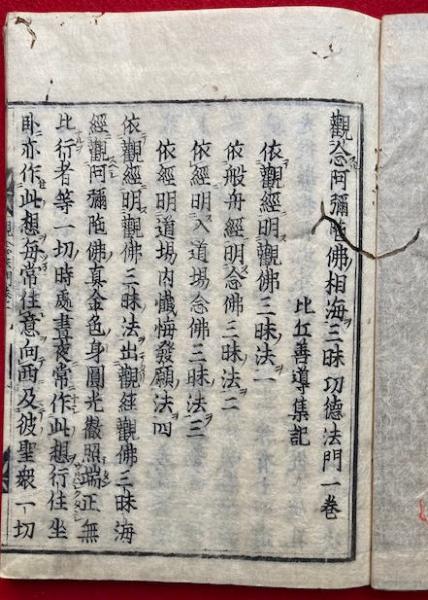 觀念阿彌陀佛相海三昧功德法門一卷
比丘善導集記
依觀經明觀佛三昧法一
依般舟經明念佛三昧法二
依經明入道場念佛三昧法三
依經明道場內懺悔發願法四
依觀經明觀佛三昧法出觀經觀佛三昧海
經觀阿彌陀佛真金色身圓光徹照端正無
比行者等一切時處晝夜常作此想行住坐
臥亦作此想每常住意向西及彼聖衆一切